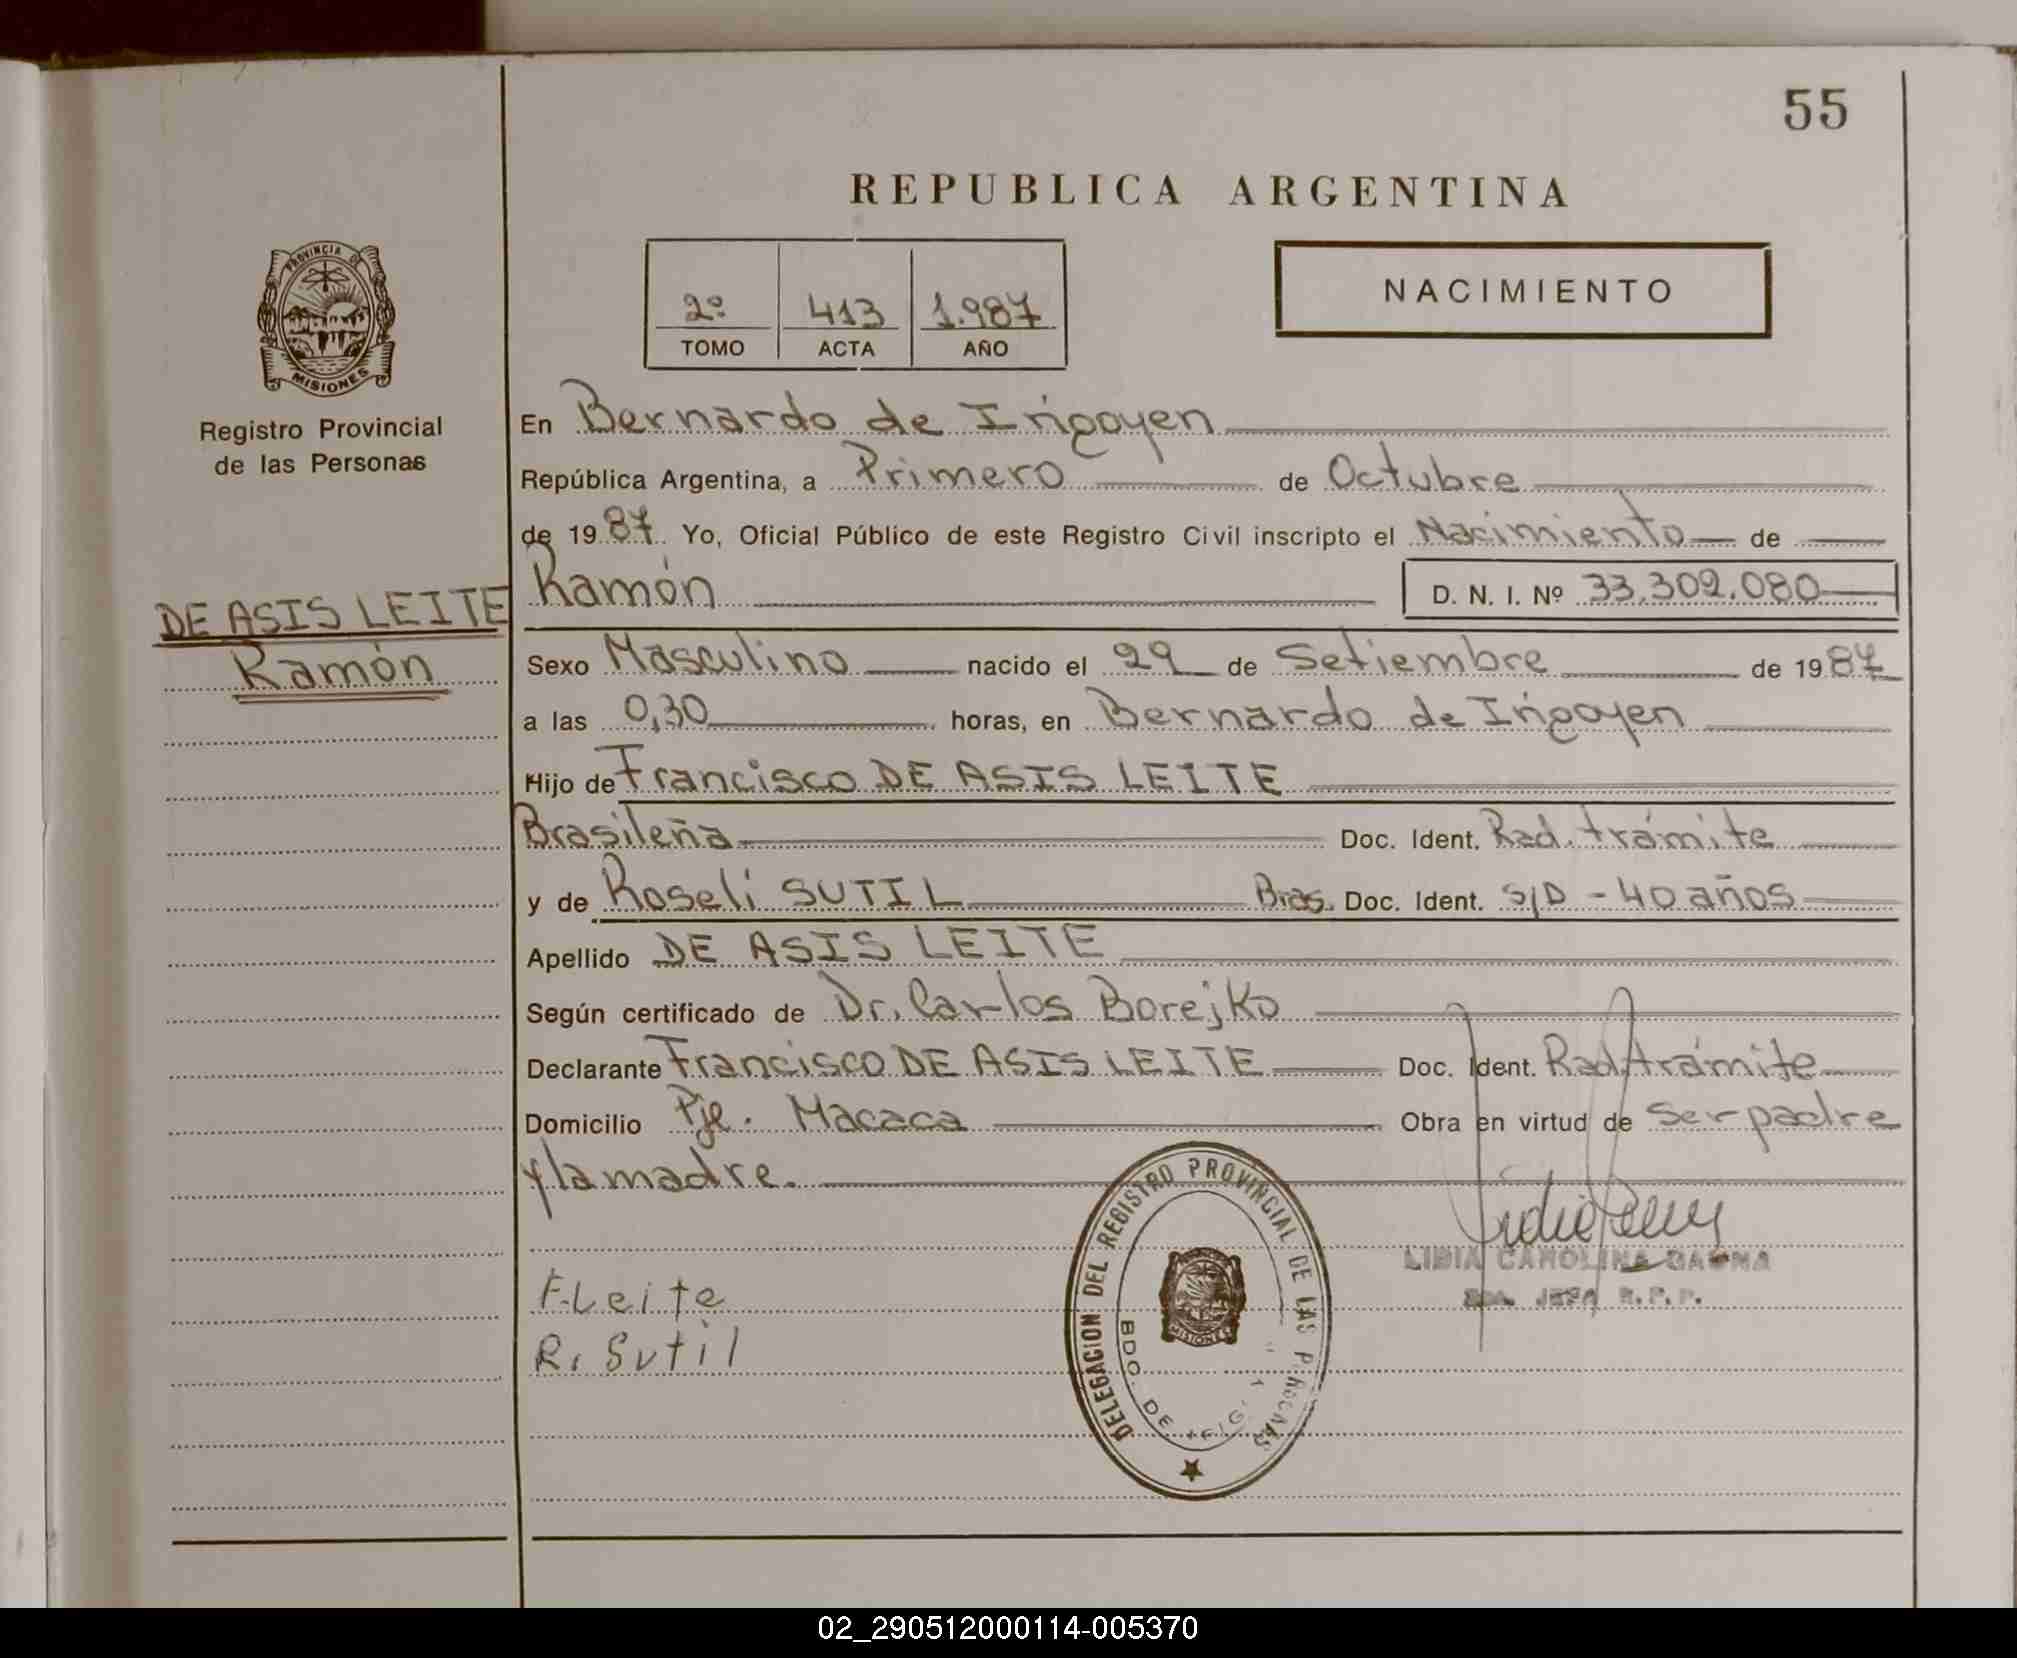 55
REPUBLICA ARGENTINA
PROVINCIA DE
MISIONES
Registro Provincial
de las Personas
2º 413 1.987
TOMO ACTA AÑO
NACIMIENTO
En Bernardo de Irigoyen
República Argentina, a Primero de Octubre
de 1987 Yo, Oficial Público de este Registro Civil inscripto el Nacimiento de
Ramón D. N. I. Nº 33.302.080
DE ASIS LEITE
Ramón
Sexo Masculino nacido el 29 de Setiembre de 1987
a las 0,30 horas, en Bernardo de Irigoyen
Hijo de Francisco DE ASIS LEITE
Brasileña Doc. Ident. Rad. trámite
y de Roseli SUTIL Bras. Doc. Ident. S/D - 40 años
Apellido DE ASIS LEITE
Según certificado de Dr. Carlos Borejko
Declarante Francisco DE ASIS LEITE Doc. Ident. Rad. trámite
Domicilio Pje. Macaca Obra en virtud de ser padre
y la madre.
DELEGACION DEL REGISTRO PROVINCIAL DE LAS PERSONAS
BDO. DE
MISIONES
LIDIA CAROLINA
JEFA R.P.P.
F. Leite
R. Sutil
02_290512000114-005370